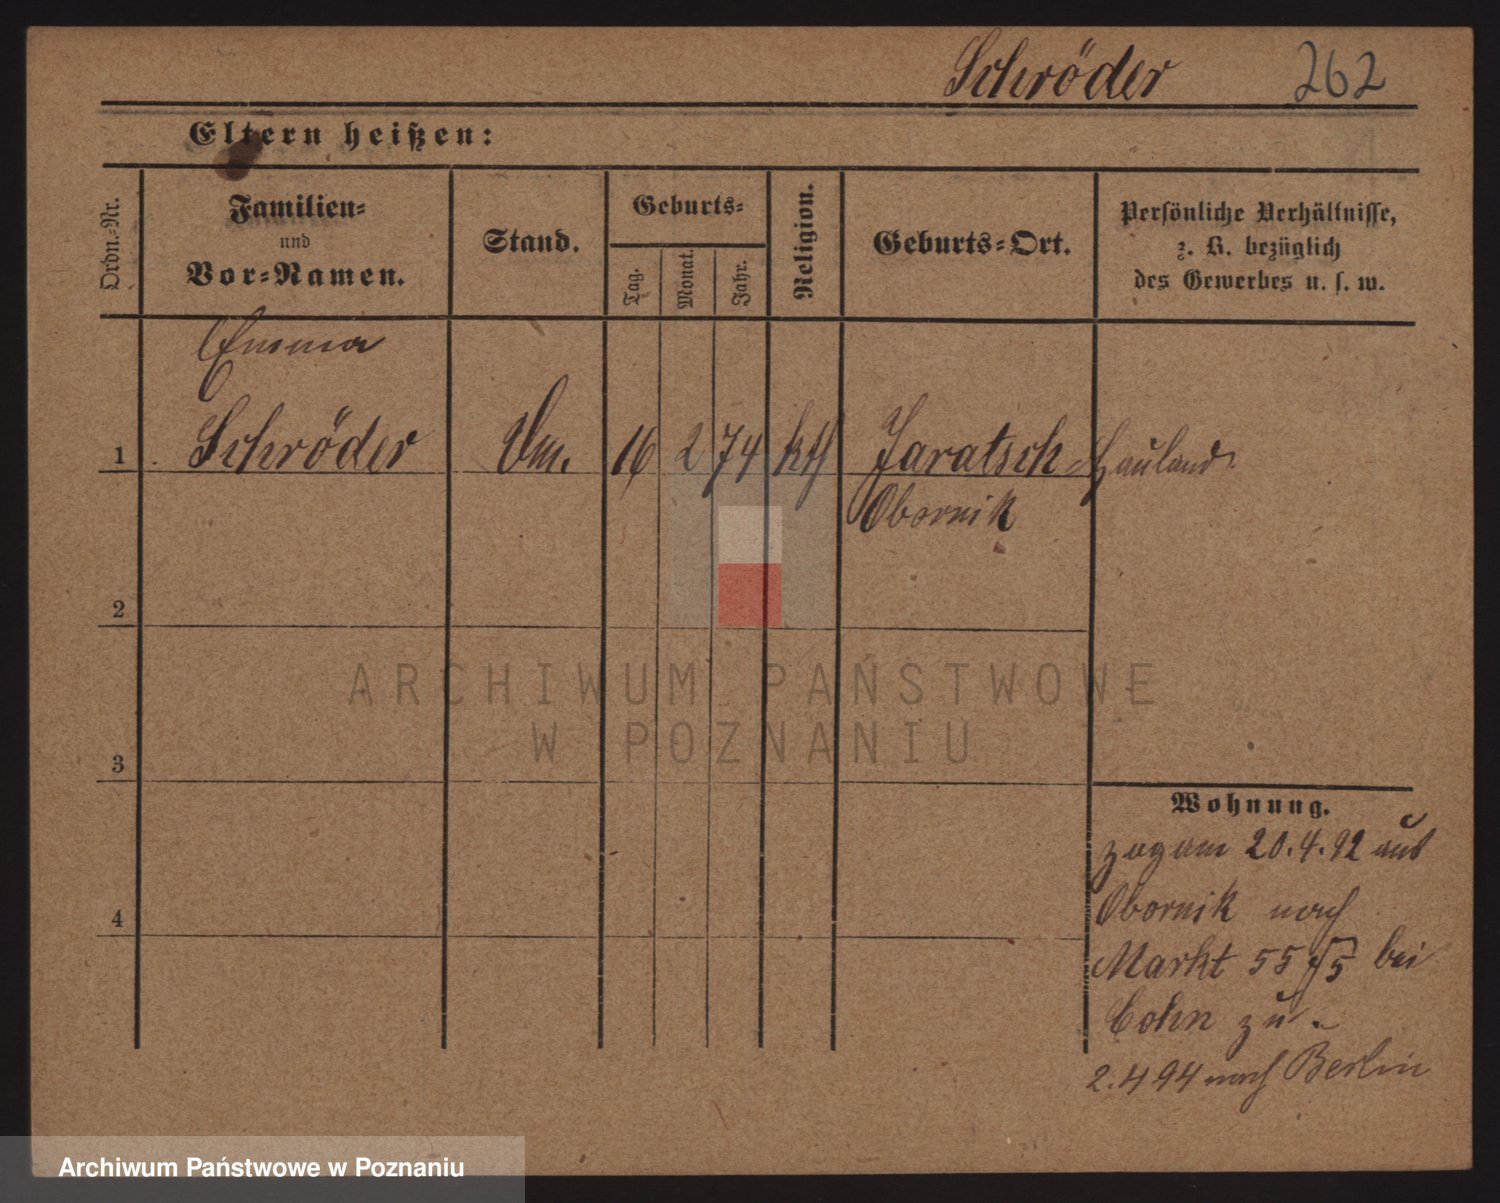 Schröder 262
Eltern heißen:
Ordn.-Nr.
Familien-
und
Vor-Namen.
Stand.
Geburts-
Tag.
Monat.
Jahr.
Religion.
Geburts-Ort.
Persönliche Verhältnisse,
z. B. bezüglich
des Gewerbes u. s. w.
Emma
1 Schröder 16 2 74 kth Jaratsch Hauland
Obornik
2
3
4
Wohnung.
zog am 20.4.92 aus
Obornik nach
Markt 55 bei
Cohn zu.
2.4 94 nach Berlin
ARCHIWUM PAŃSTWOWE
W POZNANIU
Archiwum Państwowe w Poznaniu